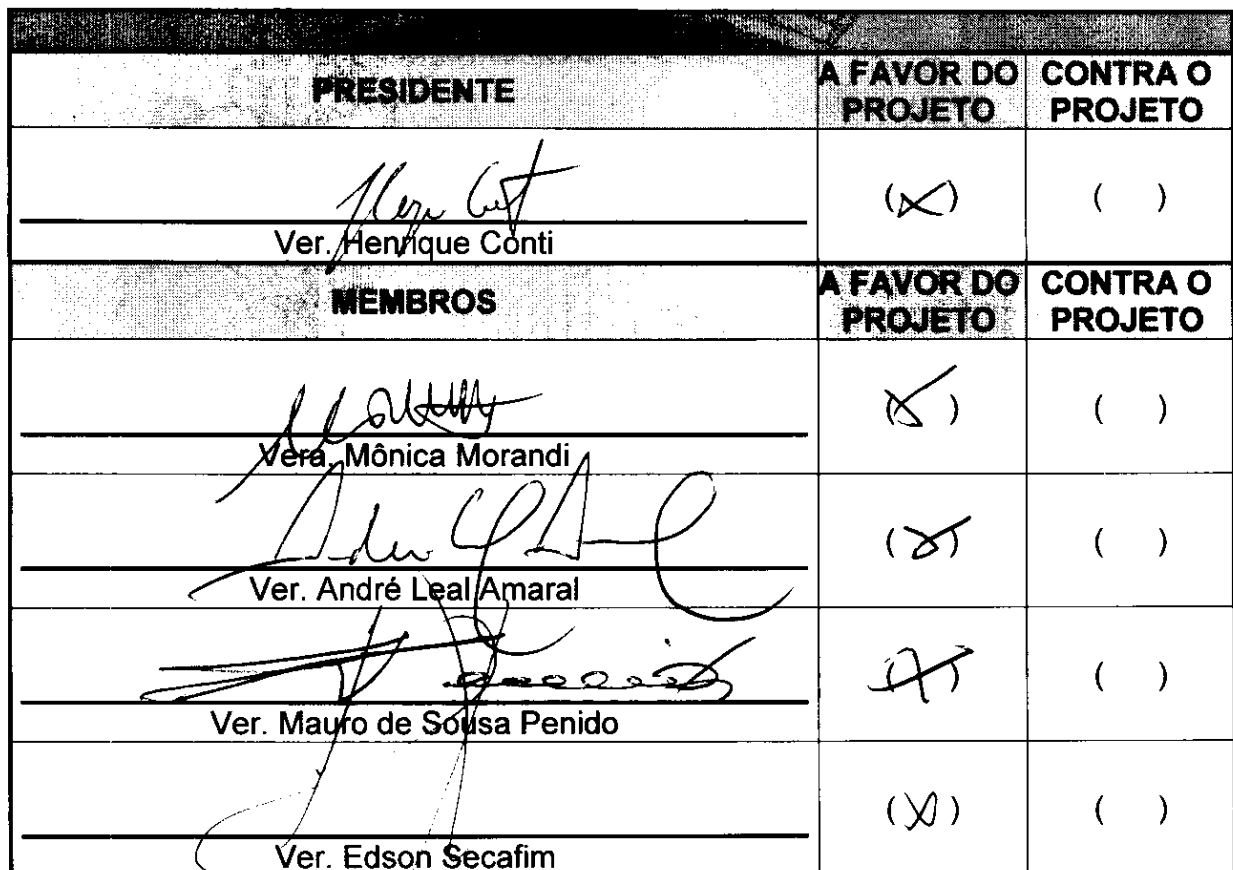 PRESIDENTE
A FAVOR DO PROJETO
CONTRA O PROJETO
(X)
( )
Ver. Henrique Conti
MEMBROS
A FAVOR DO PROJETO
CONTRA O PROJETO
(X)
( )
Vera. Mônica Morandi
(X)
( )
Ver. André Leal Amaral
(X)
( )
Ver. Mauro de Sousa Penido
(X)
( )
Ver. Edson Secafim